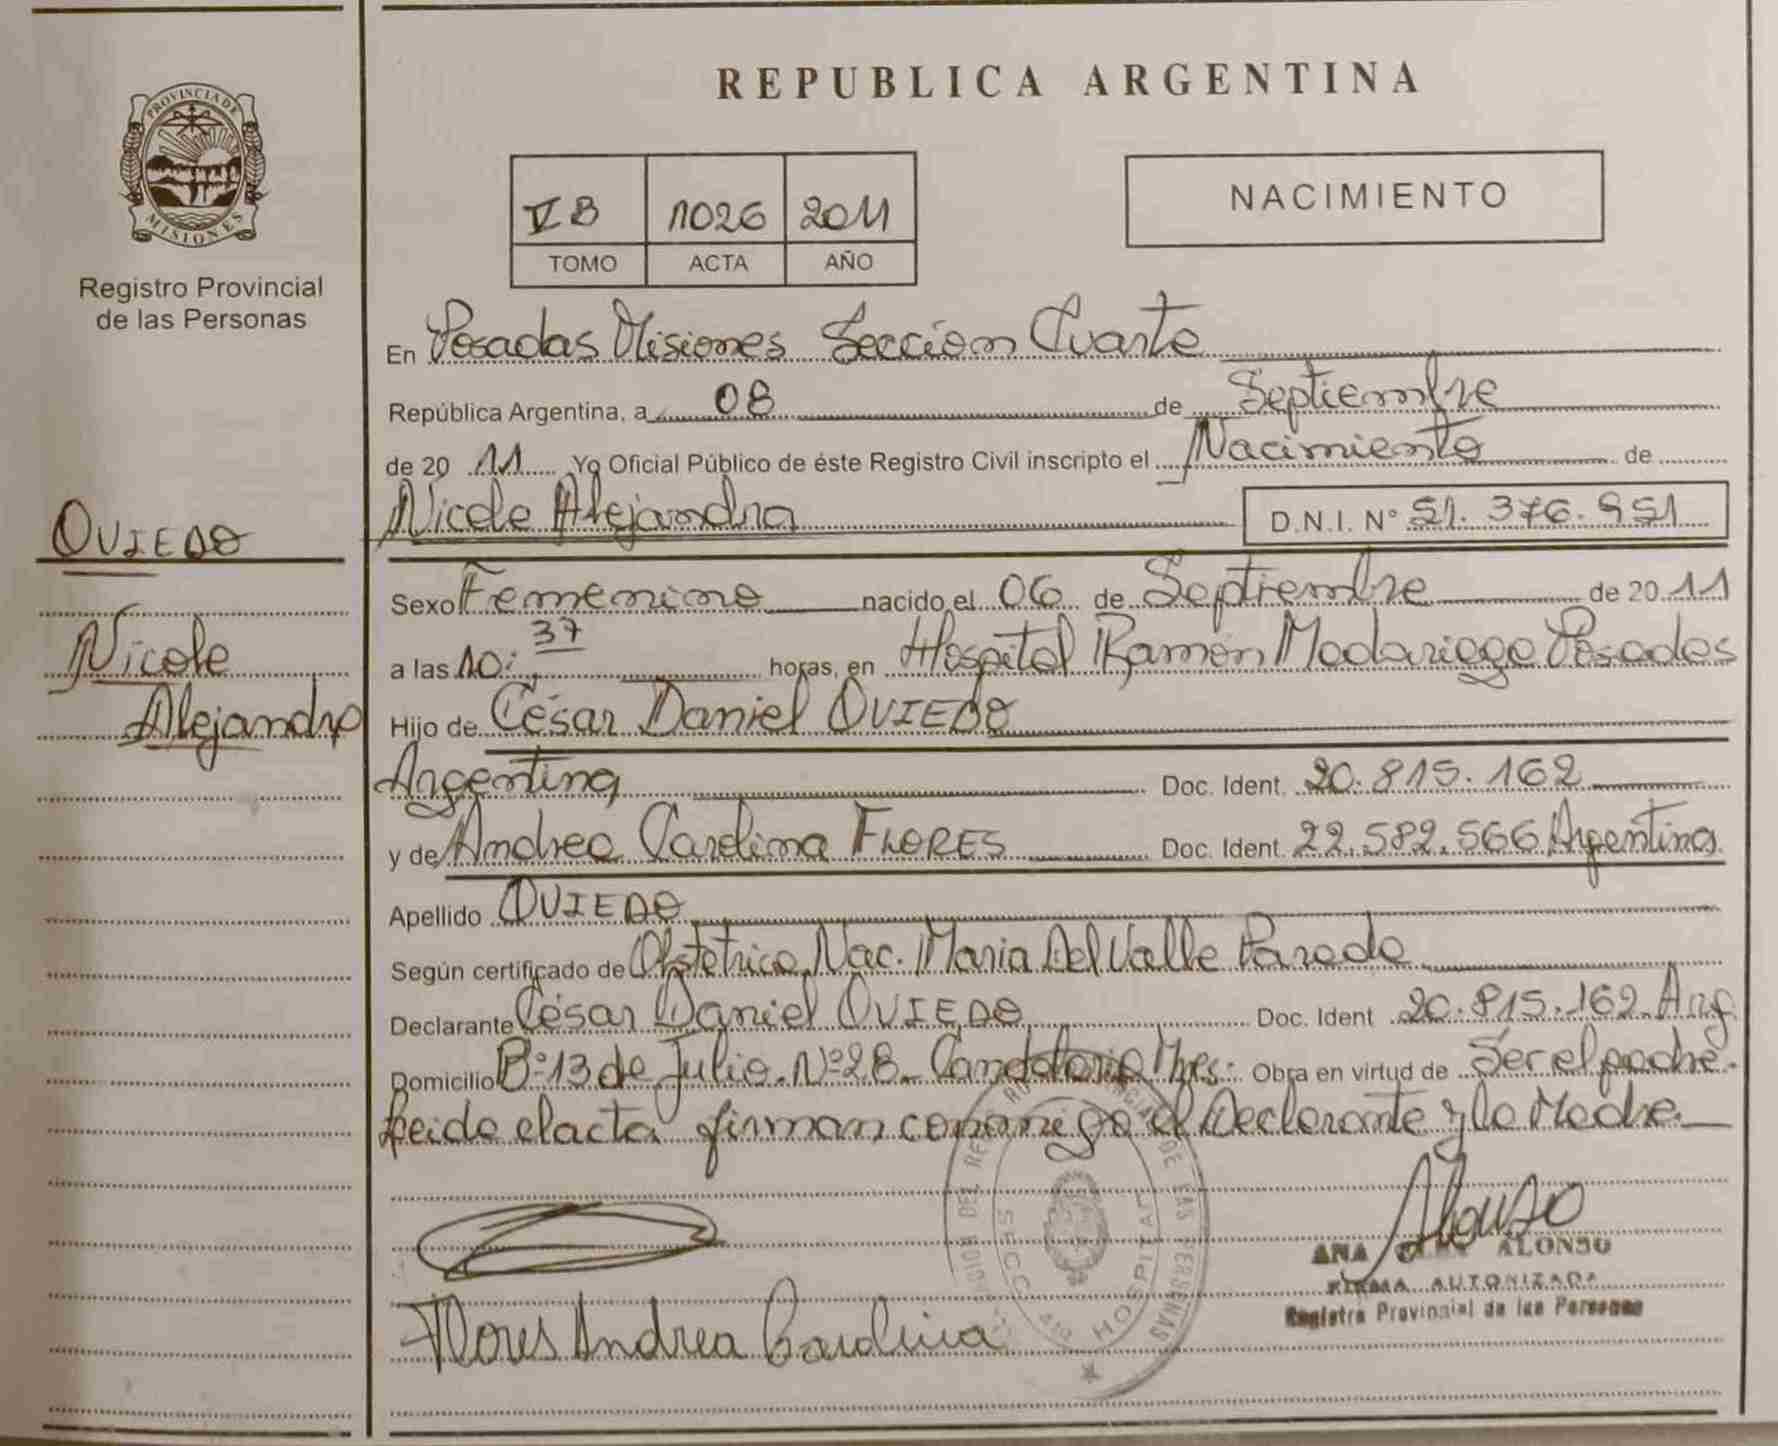 REPUBLICA ARGENTINA
PROVINCIA DE
MISIONES
Registro Provincial
de las Personas
VB 1026 2011
TOMO ACTA AÑO
NACIMIENTO
En Posadas Misiones Sección Cuarta
República Argentina, a 08 de Septiembre
de 2011 Yo Oficial Público de éste Registro Civil inscripto el Nacimiento de
Nicole Alejandra D.N.I. Nº 51.376.951
OVIEDO
Nicole
Alejandra
Sexo Femenino nacido el 06 de Septiembre de 2011
a las 10:37 horas, en Hospital Ramón Madariaga Posadas
Hijo de César Daniel OVIEDO
Argentina Doc. Ident. 20.815.162
y de Andrea Carolina FLORES Doc. Ident. 22.582.566 Argentina
Apellido OVIEDO
Según certificado de Obstetrica Nac. Maria Del Valle Parada
Declarante César Daniel OVIEDO Doc. Ident 20.815.162 Arg
Domicilio Bº 13 de Julio. Nº 28 Candelaria Mnes. Obra en virtud de Ser el padre.
Leida el acta firman conmigo el Declarante y la Madre.
Flores Andrea Carolina
Alonso
ANA ALONSO
FIRMA AUTORIZADA
Registro Provincial de las Personas
DE LAS PERSONAS
HOSPITAL